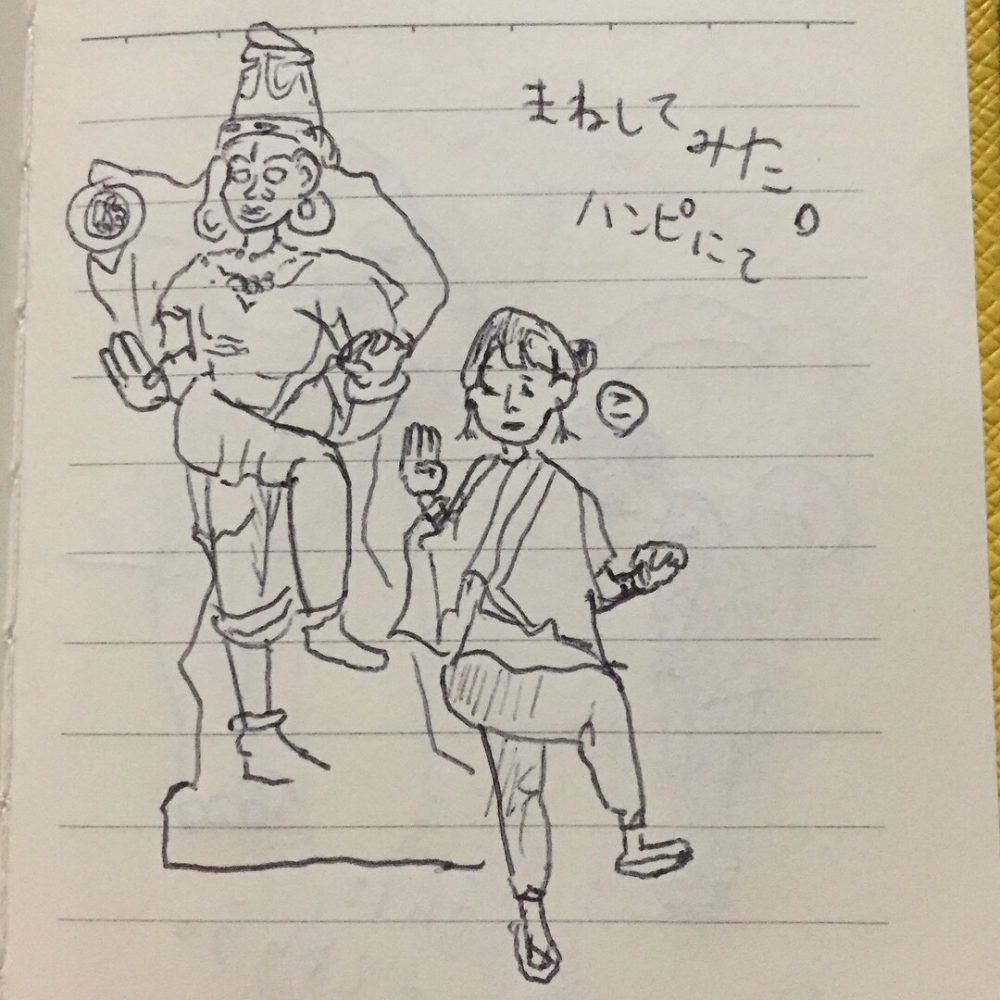 まねしてみた。
ハンピにて